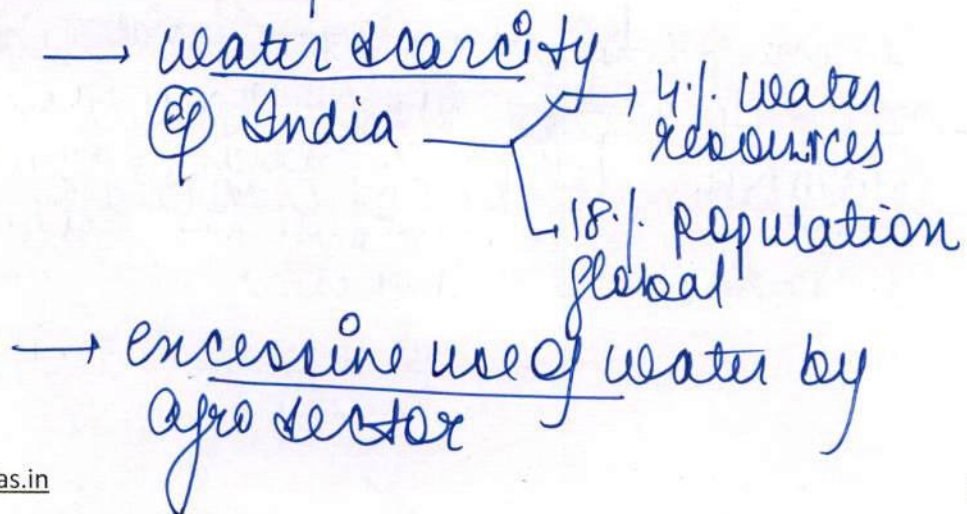 → water scarcity
eg India → 4% water
resources
→ 18% population
global
→ excessive use of water by
agro sector
as.in